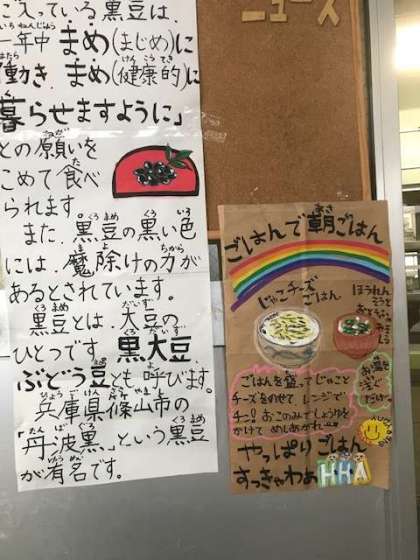 ニュース
に入っている黒豆は、
一年中まめ(まじめ)に
働き、まめ(健康的)に
暮らせますように」
との願いを
こめて食べ
られます。
また、黒豆の黒い色
には、魔除けの力が
あるとされています。
黒豆とは、大豆の
ひとつです。黒大豆
ぶどう豆とも呼びます。
兵庫県篠山市の
「丹波黒」という黒豆
が有名です。
ごはんで朝ごはん
じゃこチーズ
ごはん
ほうれん
そうと
お湯を
注ぐ
だけ
ごはんを盛ってじゃこと
チーズをのせてレンジで
チン!おこのみでしょうゆを
かけてめしあがれ
やっぱりごはん
すっきゃわぁHHA